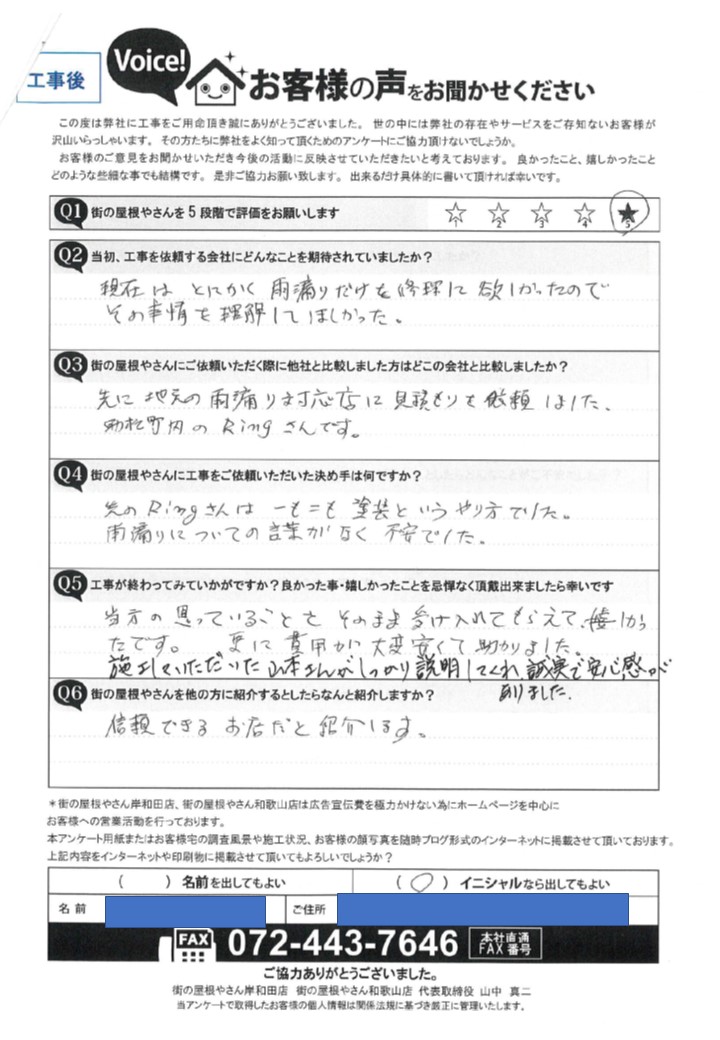 工事後
Voice!
お客様の声をお聞かせください
この度は弊社に工事をご用命頂き誠にありがとうございました。 世の中には弊社の存在やサービスをご存知ないお客様が
沢山いらっしゃいます。 その方たちに弊社をよく知って頂くためのアンケートにご協力頂けないでしょうか。
お客様のご意見をお聞かせいただき今後の活動に反映させていただきたいと考えております。 良かったこと、嬉しかったこと
どのような些細な事でも結構です。 是非ご協力お願い致します。 出来るだけ具体的に書いて頂ければ幸いです。
Q1 街の屋根やさんを5段階で評価をお願いします ☆1 ☆2 ☆3 ☆4 ★5
Q2 当初、工事を依頼する会社にどんなことを期待されていましたか?
現在は とにかく 雨漏りだけを修理に欲しかったので
その事情を理解してほしかった。
Q3 街の屋根やさんにご依頼いただく際に他社と比較しました方はどこの会社と比較しましたか?
先に 地元の雨漏り対応店に見積もりを依頼しました。
助松町内の Ringさんです。
Q4 街の屋根やさんに工事をご依頼いただいた決め手は何ですか?
先の Ringさんは 一も二も 塗装という やり方でした。
雨漏りについての言葉がなく 不安でした。
Q5 工事が終わってみていかがですか?良かった事・嬉しかったことを忌憚なく頂戴出来ましたら幸いです
当方の思っていることを そのまま受け入れてもらえて、嬉しかっ
たです。 更に 費用が 大変安くて助かりました。
施工していただいた 山本さんがしっかり説明してくれ、誠実で安心感が
ありました.
Q6 街の屋根やさんを他の方に紹介するとしたらなんと紹介しますか?
信頼できる お店だと紹介します。
*街の屋根やさん岸和田店、街の屋根やさん和歌山店は広告宣伝費を極力かけない為にホームページを中心に
お客様への営業活動を行っております。
本アンケート用紙またはお客様宅の調査風景や施工状況、お客様の顔写真を随時ブログ形式のインターネットに掲載させて頂いております。
上記内容をインターネットや印刷物に掲載させて頂いてもよろしいでしょうか?
( ) 名前を出してもよい (○) イニシャルなら出してもよい
名前 ご住所
FAX 072-443-7646 本社直通 FAX番号
ご協力ありがとうございました。
街の屋根やさん岸和田店 街の屋根やさん和歌山店 代表取締役 山中 真二
当アンケートで取得したお客様の個人情報は関係法規に基づき厳正に管理いたします。